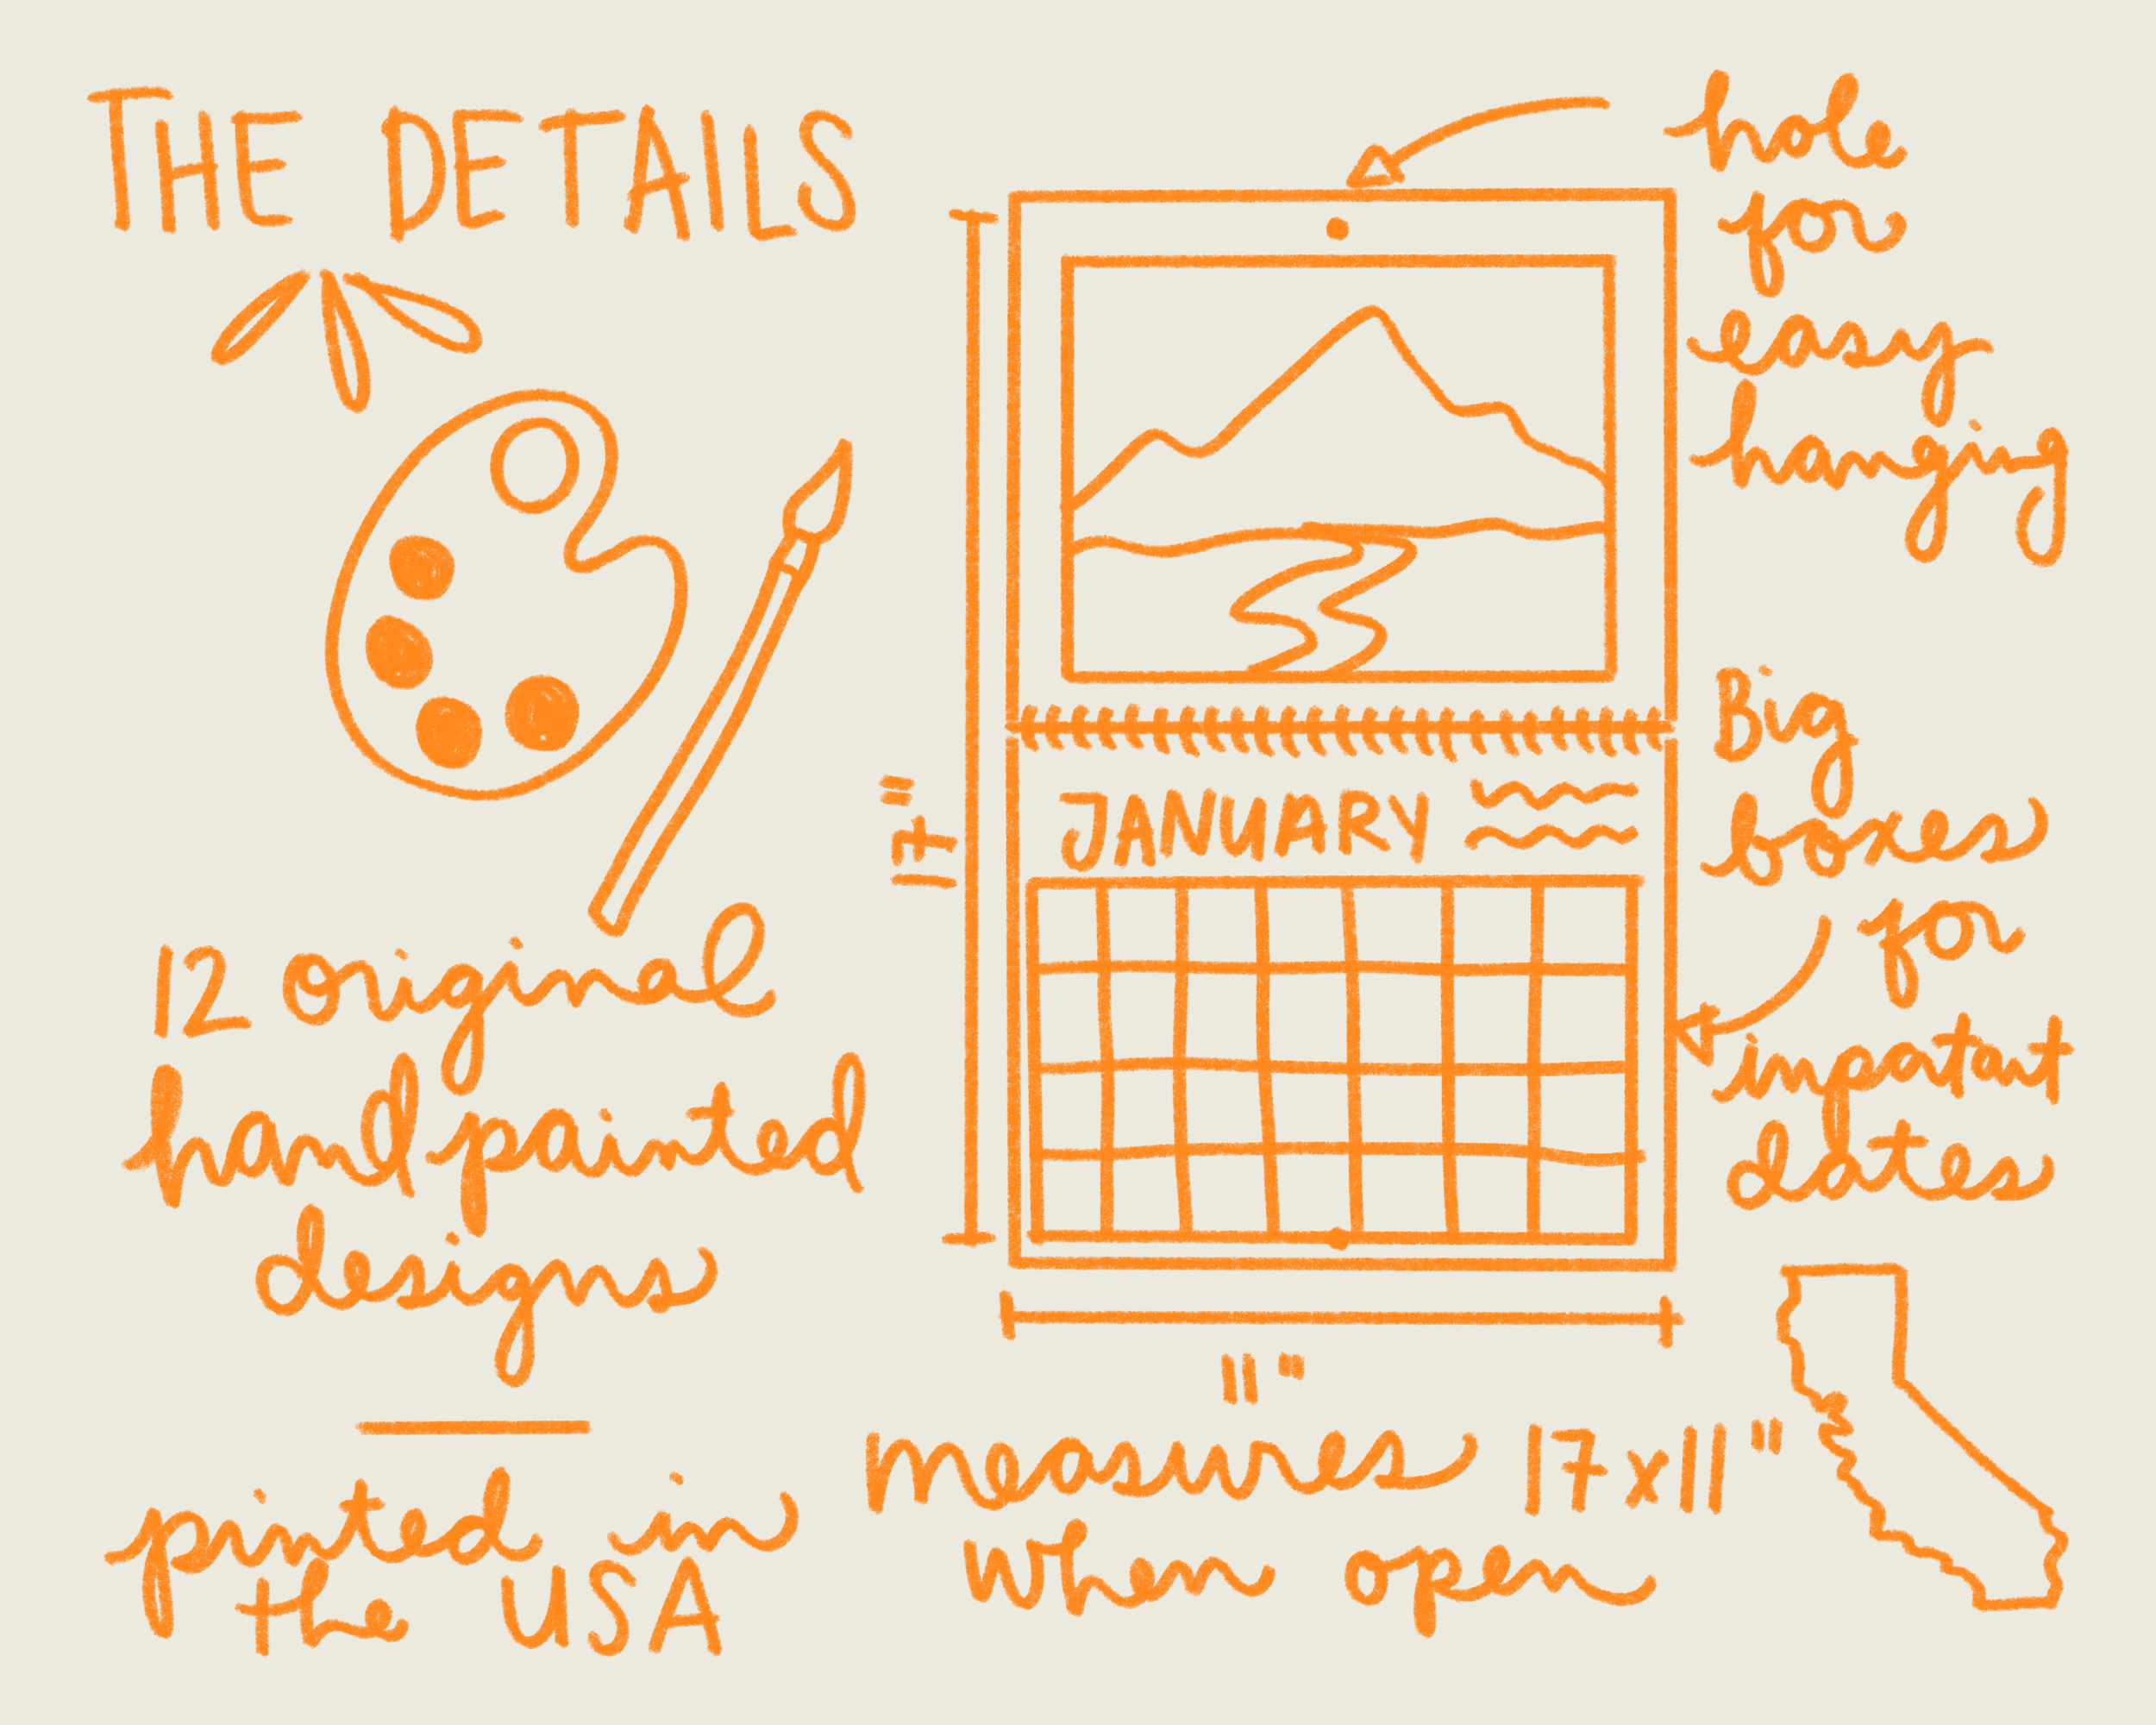 THE DETAILS
12 original
hand painted
designs
printed in
the USA
hole
for
easy
hanging
17"
JANUARY
Big
boxes
for
inpoatant
dates
11"
measures 17x11"
when open